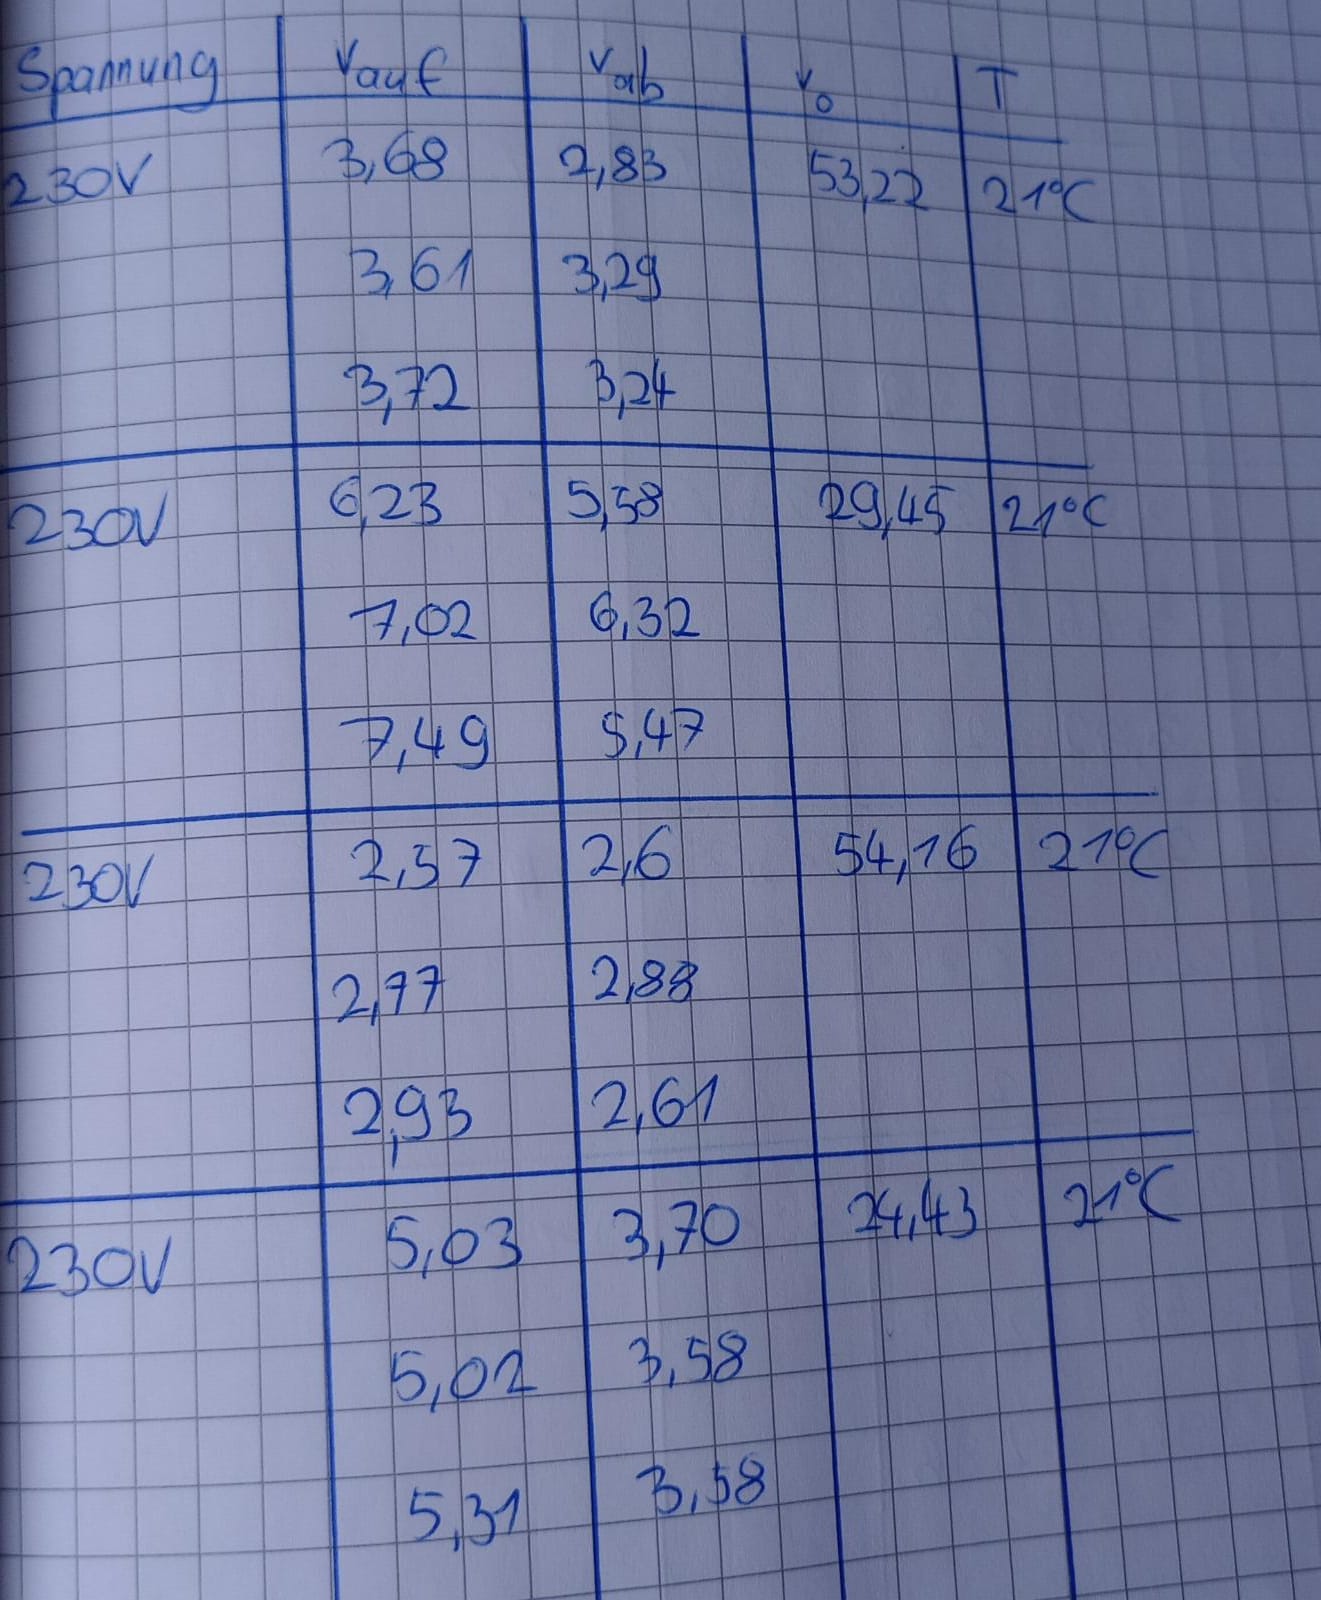 Spannung Vauf Vab V0 T
230V 3,68 2,83 53,22 21°C
3,61 3,29
3,72 3,24
230V 6,23 5,58 29,45 21°C
7,02 6,32
7,49 5,47
230V 2,57 2,6 54,16 21°C
2,77 2,88
2,93 2,61
230V 5,03 3,70 24,43 21°C
5,02 3,58
5,31 3,58